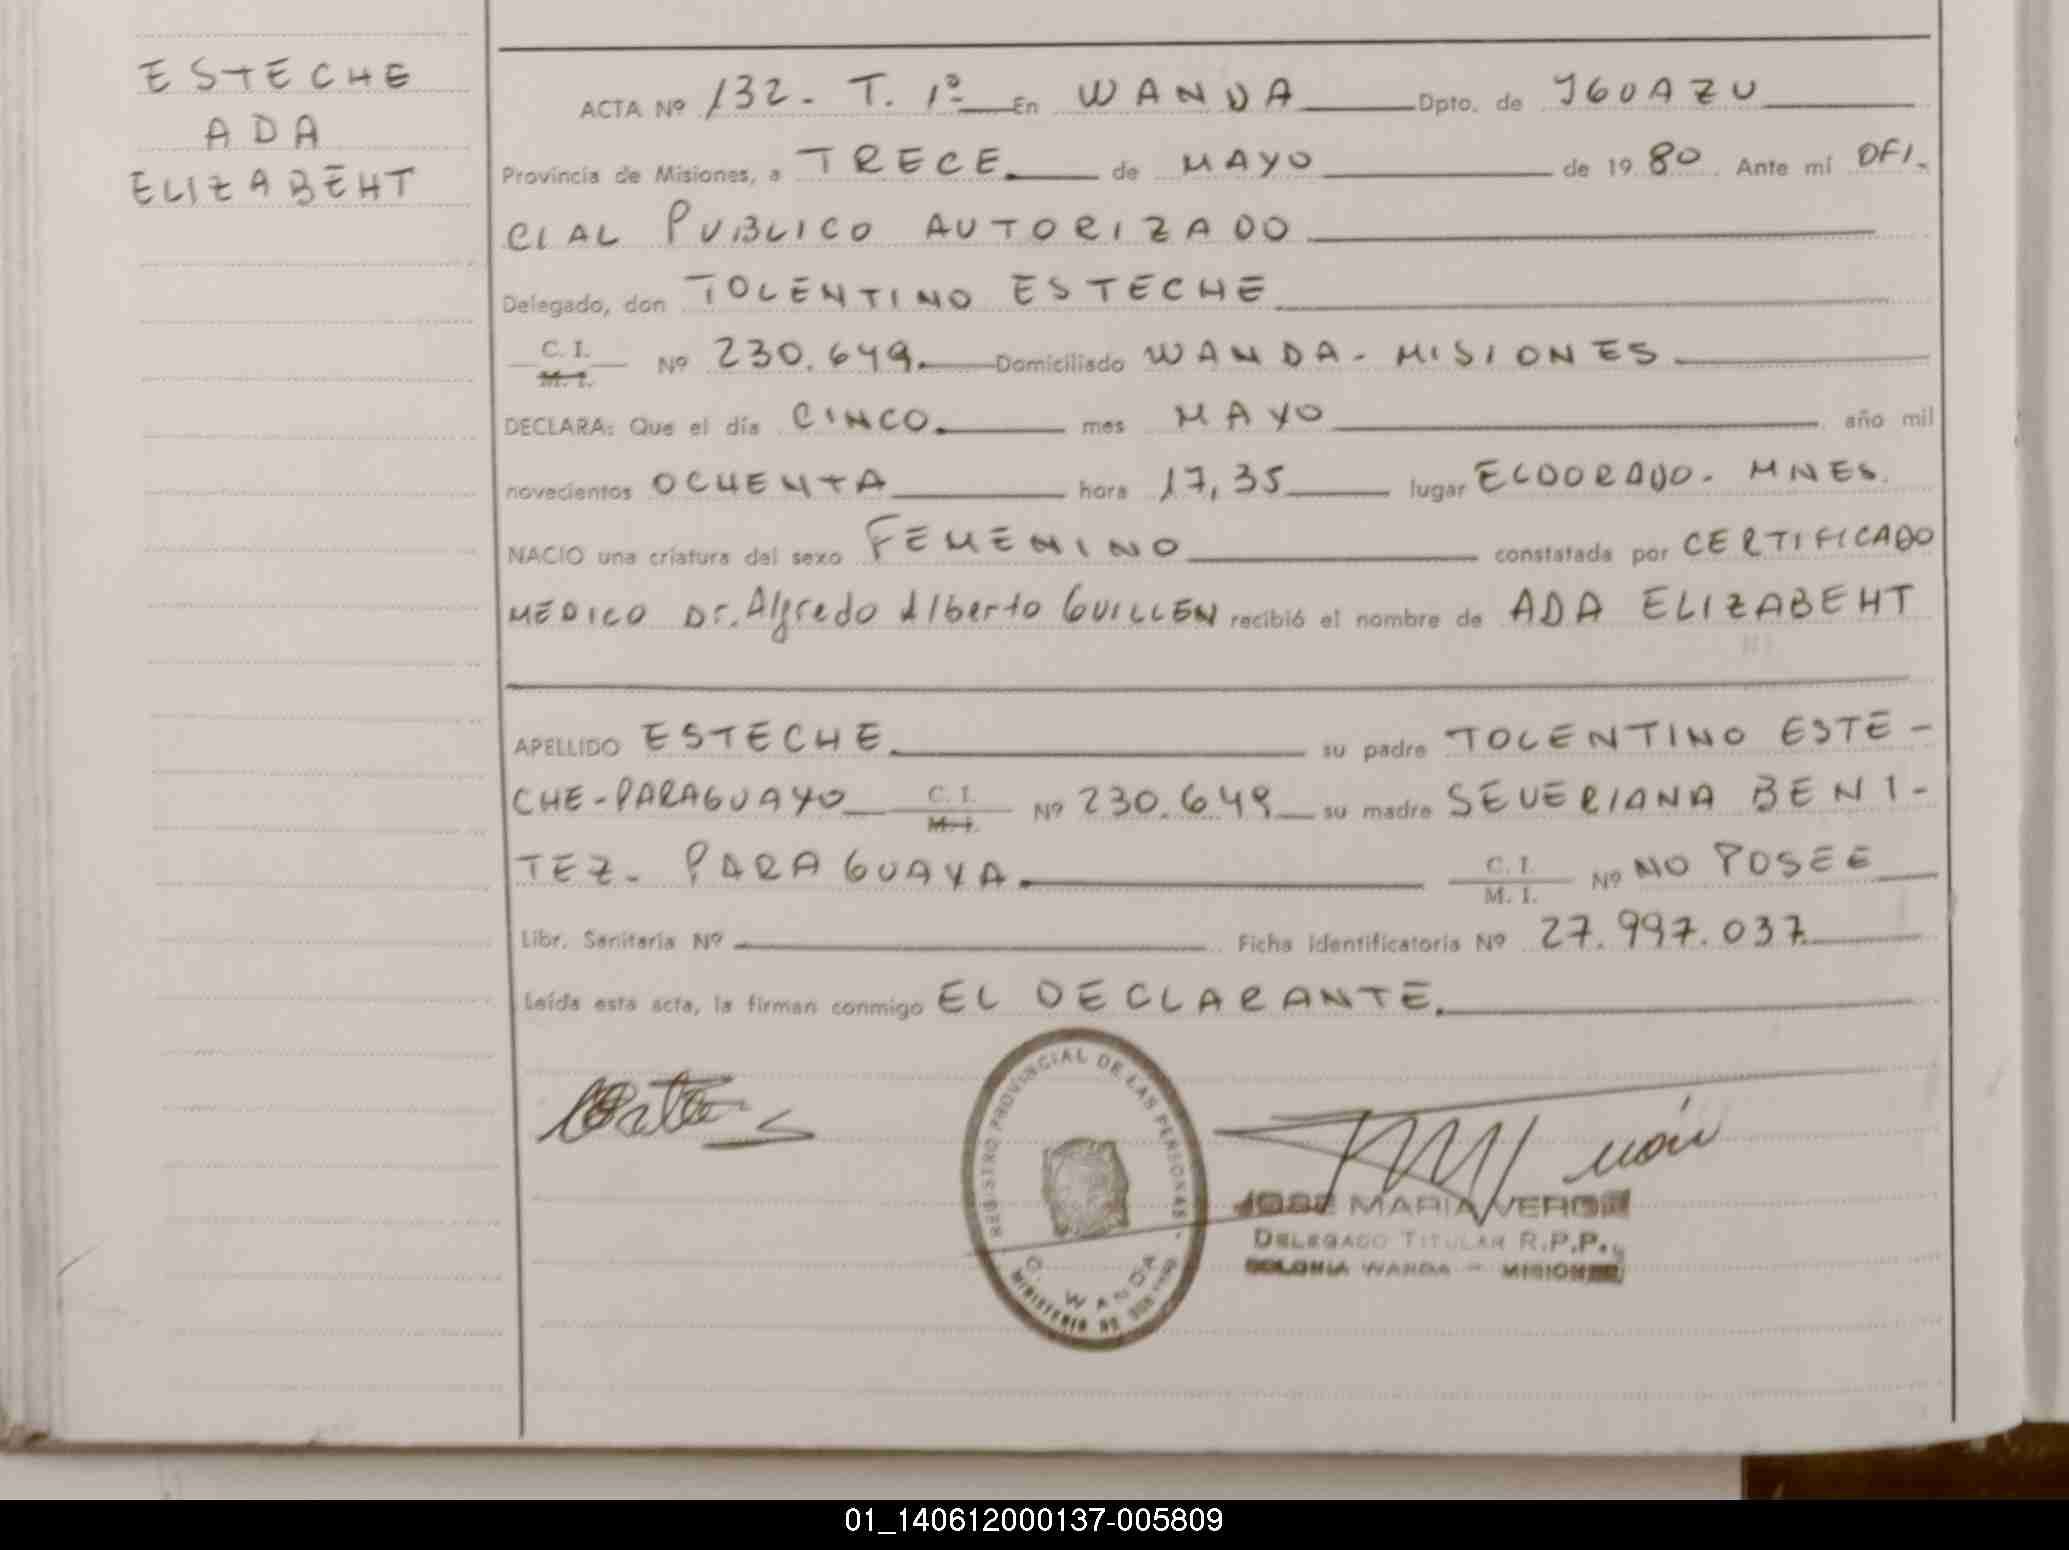 ESTECHE
ADA
ELIZABEHT
ACTA Nº 132- T. 1º En WANDA Dpto. de IGUAZU
Provincia de Misiones, a TRECE de MAYO de 1980 Ante mí OFI-
CIAL PUBLICO AUTORIZADO
Delegado, don TOLENTINO ESTECHE
C. I.
M. I. Nº 230.649 Domiciliado WANDA - MISIONES
DECLARA: Que el día CINCO mes MAYO año mil
novecientos OCHENTA hora 17,35 lugar ELDORADO - MNES.
NACIO una criatura del sexo FEMENINO constatada por CERTIFICADO
MEDICO Dr. Alfredo Alberto GUILLEN recibió el nombre de ADA ELIZABEHT
APELLIDO ESTECHE su padre TOLENTINO ESTE-
CHE-PARAGUAYO C. I.
M. I. Nº 230.649 su madre SEVERIANA BENI-
TEZ - PARAGUAYA C. I.
M. I. Nº NO POSEE
Libr. Sanitaria Nº Ficha identificatoria Nº 27.997.037
Leída esta acta, la firman conmigo EL DECLARANTE.
REGISTRO PROVINCIAL DE LAS PERSONAS
C. WANDA
MINISTERIO DE
JOSE MARIA
DELEGADO TITULAR R.P.P.
COLONIA WANDA - MISIONES
01_140612000137-005809